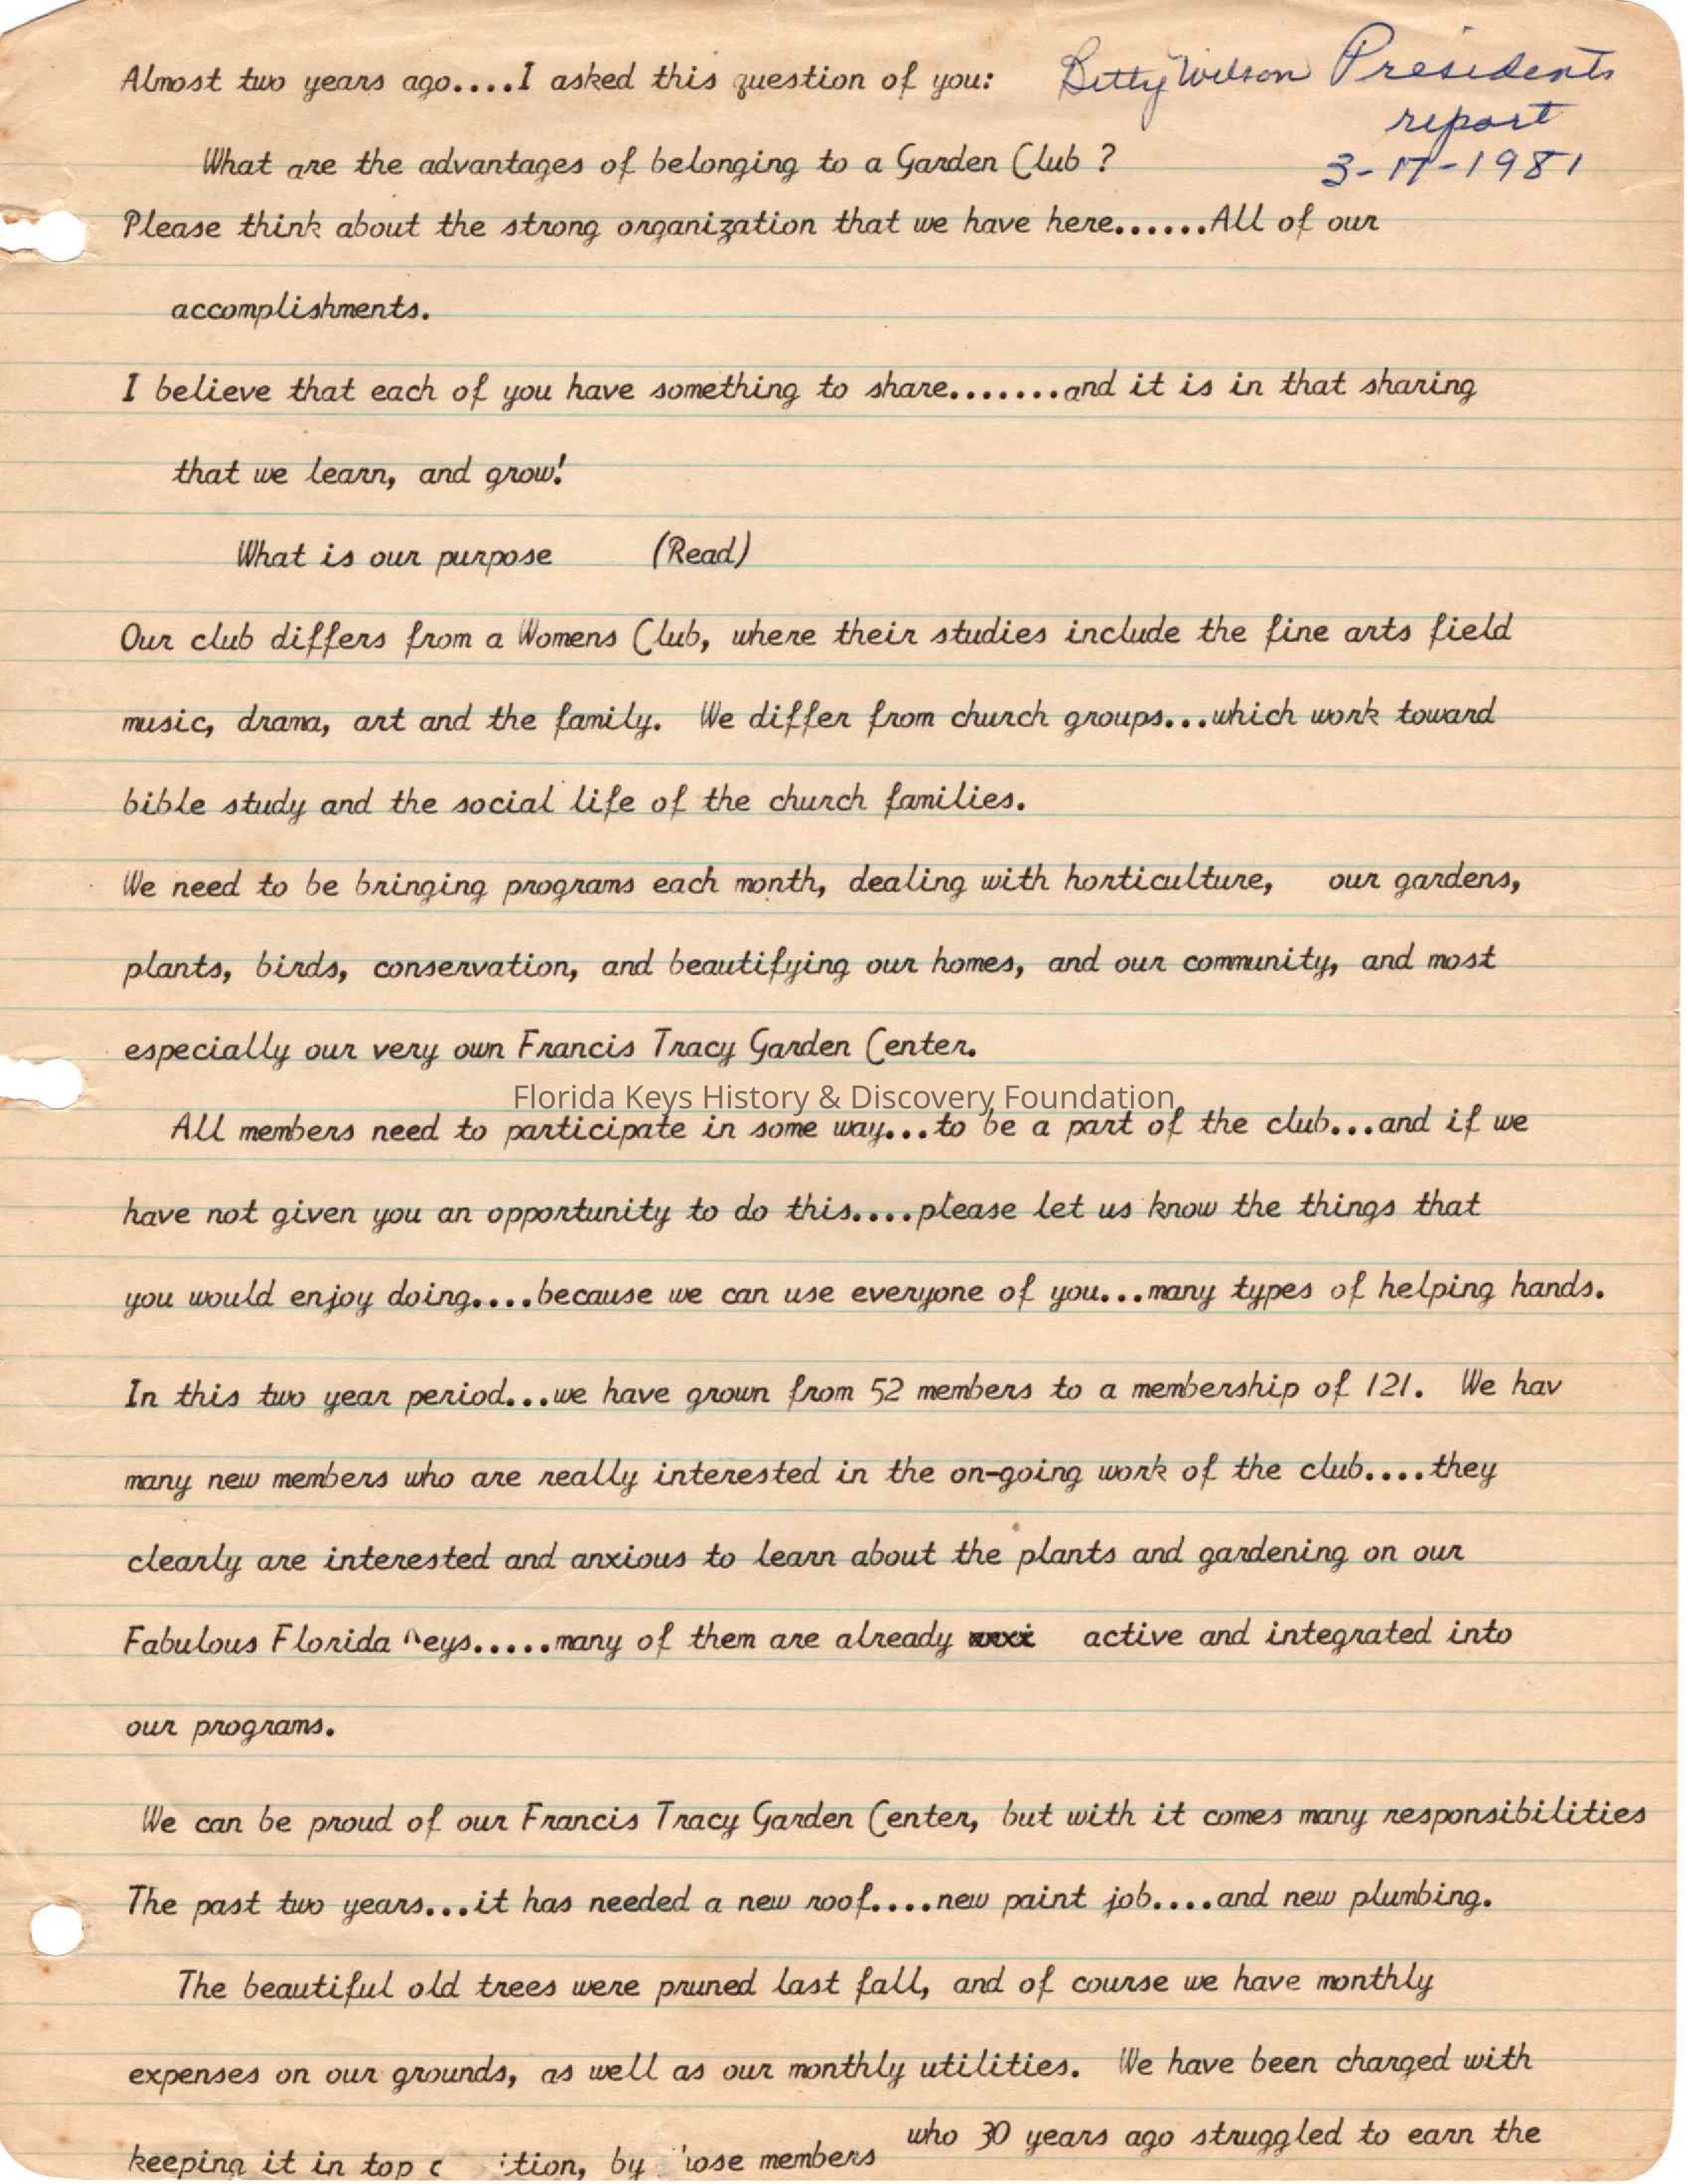 Almost two years ago....I asked this question of you: Betty Wilson Presidents
report
3-17-1981
What are the advantages of belonging to a Garden Club ?
Please think about the strong organization that we have here......All of our
accomplishments.
I believe that each of you have something to share.......and it is in that sharing
that we learn, and grow!
What is our purpose (Read)
Our club differs from a Womens Club, where their studies include the fine arts field
music, drama, art and the family. We differ from church groups...which work toward
bible study and the social life of the church families.
We need to be bringing programs each month, dealing with horticulture, our gardens,
plants, birds, conservation, and beautifying our homes, and our community, and most
especially our very own Francis Tracy Garden Center.
Florida Keys History & Discovery Foundation
All members need to participate in some way...to be a part of the club...and if we
have not given you an opportunity to do this....please let us know the things that
you would enjoy doing....because we can use everyone of you...many types of helping hands.
In this two year period...we have grown from 52 members to a membership of 121. We hav
many new members who are really interested in the on-going work of the club....they
clearly are interested and anxious to learn about the plants and gardening on our
Fabulous Florida Keys.....many of them are already active and integrated into
our programs.
We can be proud of our Francis Tracy Garden Center, but with it comes many responsibilities
The past two years...it has needed a new roof....new paint job....and new plumbing.
The beautiful old trees were pruned last fall, and of course we have monthly
expenses on our grounds, as well as our monthly utilities. We have been charged with
keeping it in top c ition, by those members who 30 years ago struggled to earn the